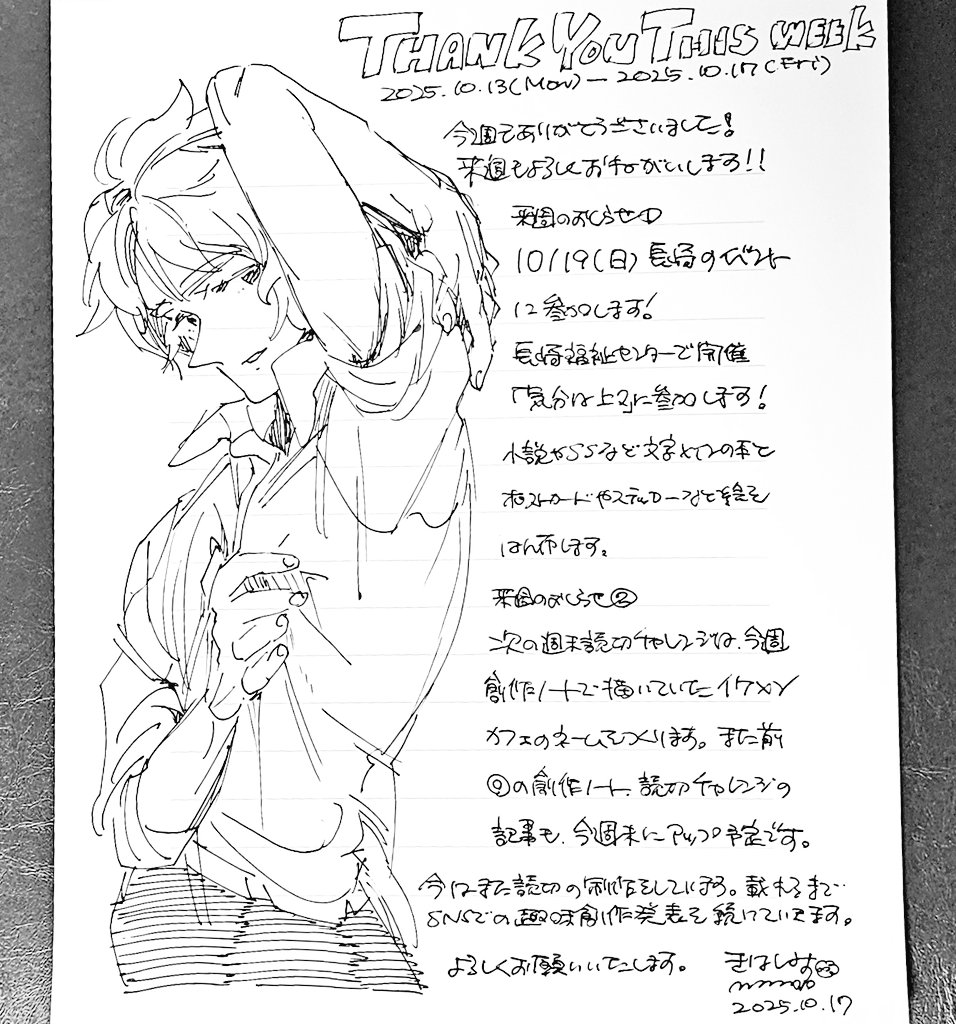 THANK YOU THIS WEEK
2025.10.13(Mon)ー2025.10.17(Fri)
今週もありがとうございました!
来週もよろしくおねがいします!!
来週のおしらせ①
10/19(日)長崎のイベント
に参加します!
長崎福祉センターで開催
「気分は上々」に参加します!
小説やSSなど文字メインの本と
ポストカードやステッカーなど絵を
はん布します。
来週のおしらせ②
次の週末読切チャレンジは、今週
創作ノートで描いていたイケメン
カフェのネームをつくります。また前
の創作ノート、読切チャレンジの
記事も、今週末にアップ予定です。
今はまた読切の制作をしています。載れるまで
SNSでの趣味創作発表を続けていきます。
よろしくお願いいたします。
2025.10.17